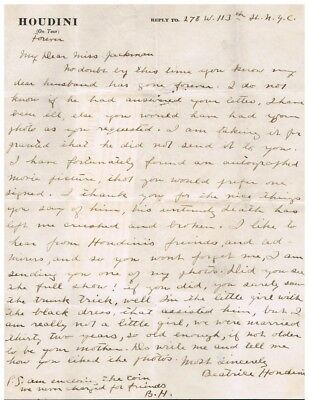 HOUDINI
(On Tour)
Forever
REPLY TO. 278 W. 113th St. N.Y.C.
My Dear Miss Jackman
No doubt by this time you know my
dear husband has gone forever. I do not
know if he had answered your letter, I have
been ill, else you would have had your
photo as you requested. I am taking it for
granted that he did not send it to you.
I have fortunately found an autographed
movie picture, that you would prefer one
signed. I thank you for the nice things
you say of him, his untimely death has
left me crushed and broken. I like to
hear from Houdini's freinds, and ad-
mirers, and so you wont forget me, I am
sending you one of my photos. Did you see
the full show? if you did, you surely saw
the trunk trick, well Im the little girl with
the black dress, that assisted him, but I
am really not a little girl, we were married
thirty two years, so old enough, if not older
to be your mother. Do write me and tell me
how you liked the photos. Most Sincerely
Beatrice Houdini
P.S. am enclosin. the coin
we never charged for friends
B.H.